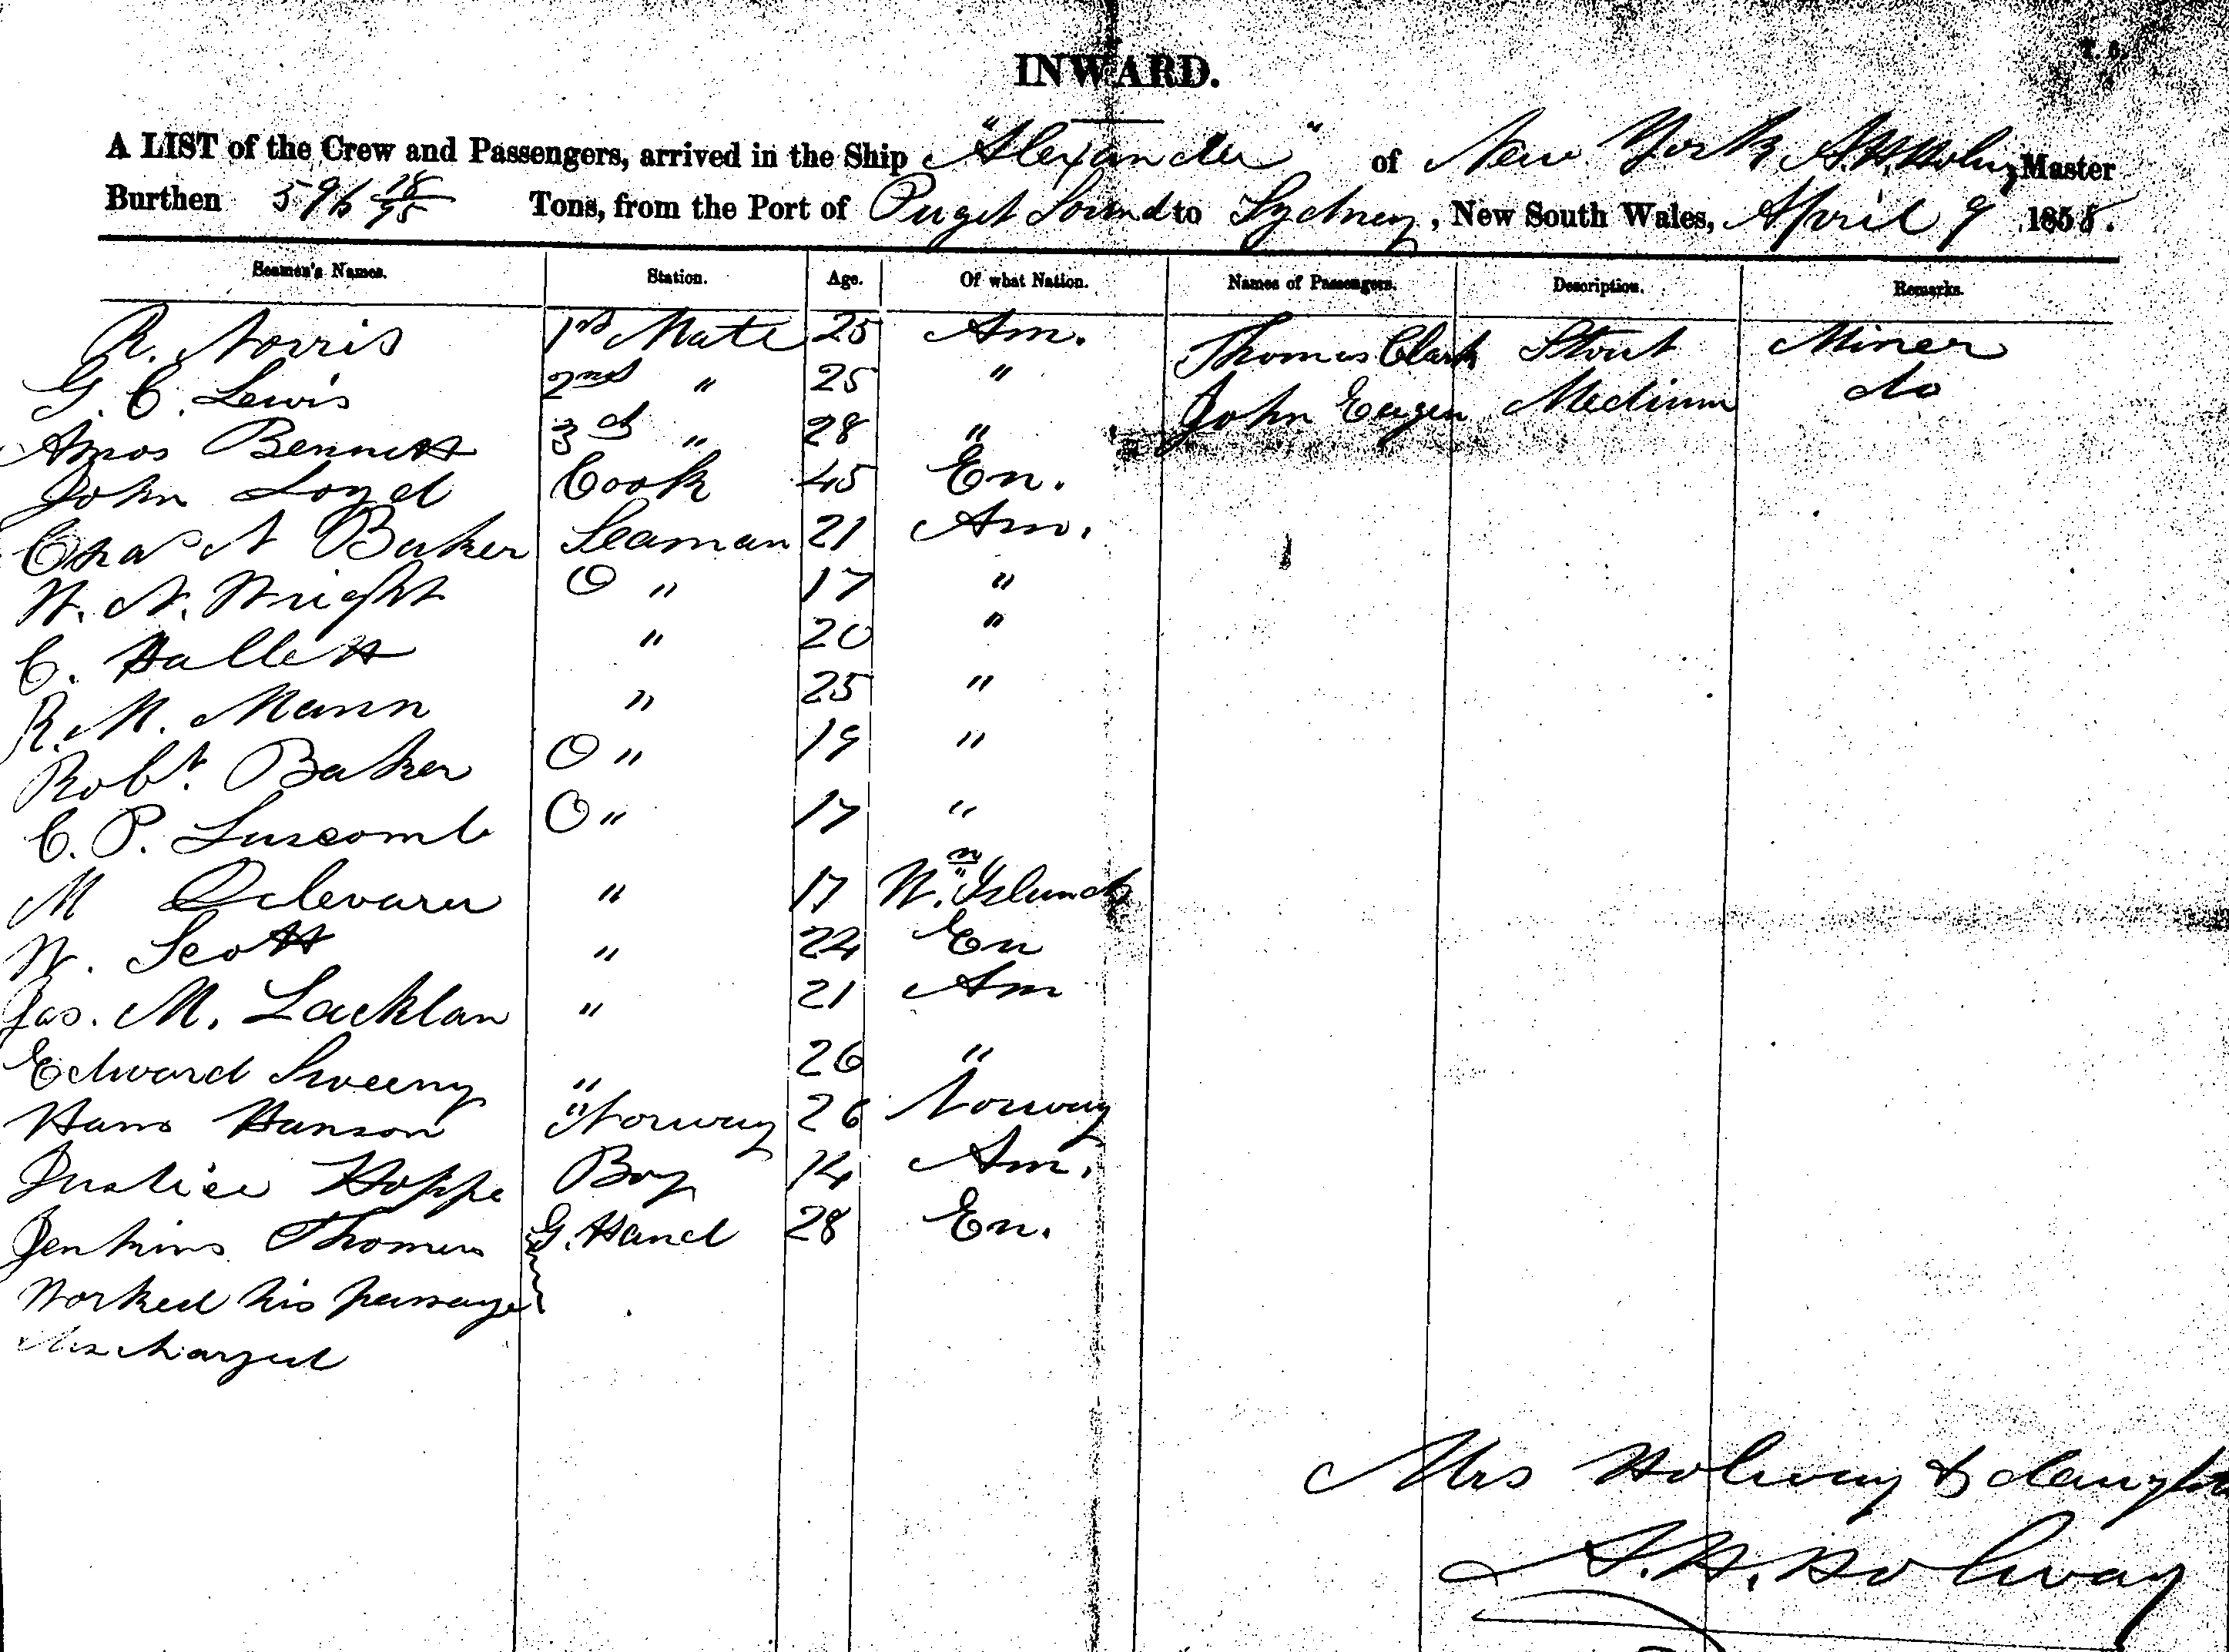 INWARD.
A LIST of the Crew and Passengers, arrived in the Ship "Alexander" of New York A.H. Holway Master
Burthen 596 Tons, from the Port of Puget Sound to Sydney, New South Wales, April 9 1858.
Seamen's Names. Station. Age. Of what Nation. Names of Passengers. Description. Remarks.
R. Norris 1st Mate 25 Am. Thomas Clark Stout Miner
G. C. Lewis 2nd " 25 " John Medium do
Amos Bennett 3d " 28 "
John Loyd Cook 45 En.
Chas N Baker Seaman 21 Am.
W. N. Wright O " 17 "
C. Hallett " 20 "
R. M. Mann " 25 "
Robt. Baker O " 19 "
C. P. Luscomb O " 17 "
M " 17 Wn. Islands
W. Scott " 22 En
Jas. M. Lacklan " 21 Am
Edward Sweeny " 26 "
Hans Hanson " Norway 26 Norway
Justice Hoppe Boy 14 Am.
Jenkins Thomas G. Hand 28 En.
Worked his passage
discharged
Mrs Holway & daughter
A. H. Holway